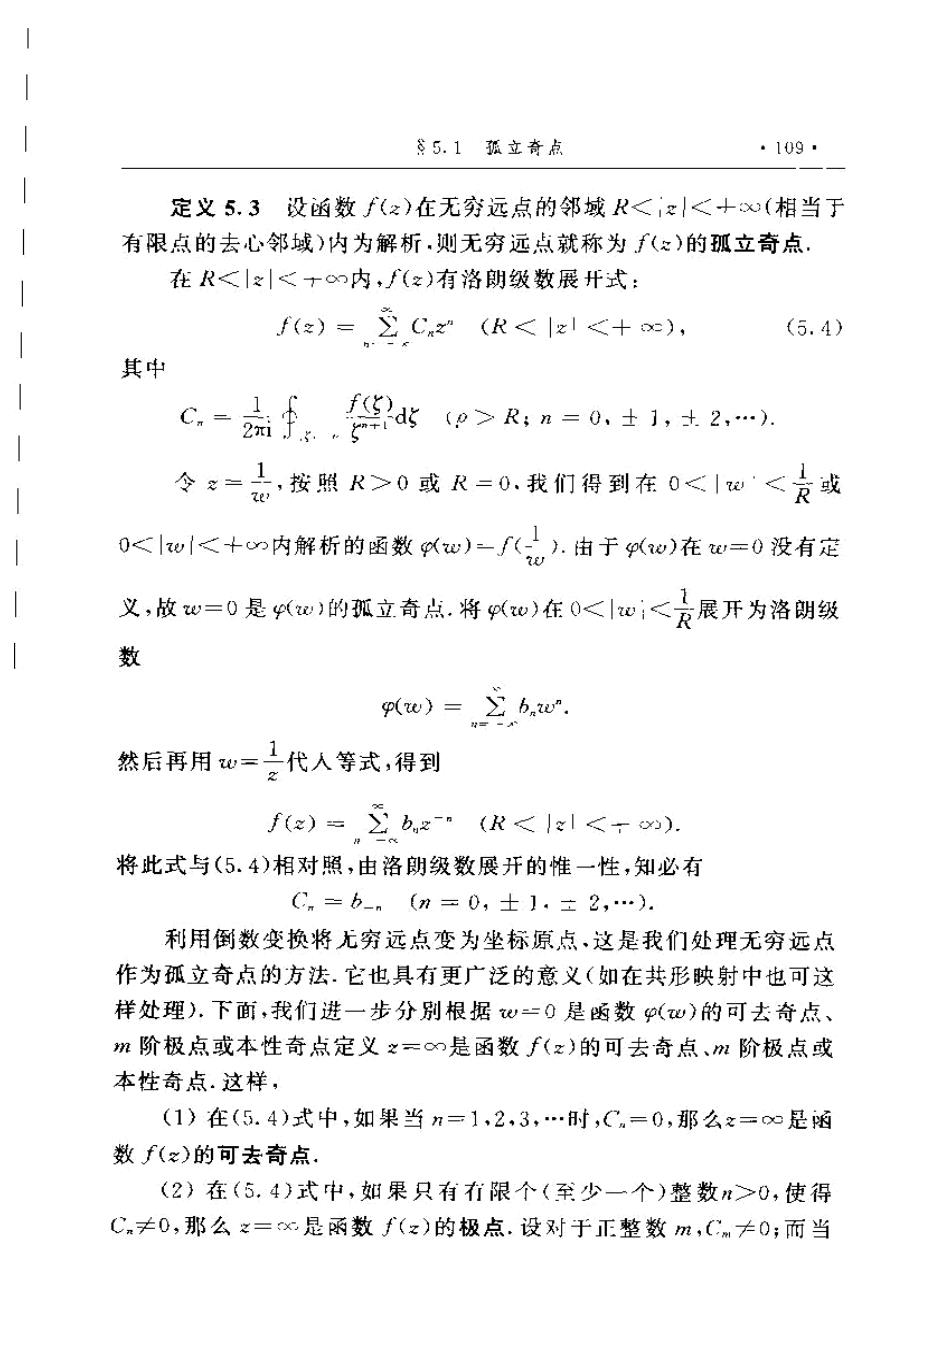 §5.1 孤立奇点 ·109·
定义 5.3 设函数 f(z)在无穷远点的邻域 R<|z|<+∞(相当于
有限点的去心邻域)内为解析,则无穷远点就称为 f(z)的孤立奇点.
在 R<|z|<+∞内,f(z)有洛朗级数展开式:
f(z) = ∑ Cₙzⁿ (R < |z| <+ ∞), (5.4)
其中
Cₙ = 1/2πi ∮ f(ζ)/ζⁿ⁺¹ dζ (ρ > R; n = 0, ± 1, ± 2,…).
令 z = 1/w,按照 R>0 或 R=0,我们得到在 0<|w|<1/R 或
0<|w|<+∞内解析的函数 φ(w)=f(1/w).由于 φ(w)在 w=0 没有定
义,故 w=0 是 φ(w)的孤立奇点.将 φ(w)在 0<|w|<1/R 展开为洛朗级
数
φ(w) = ∑ bₙwⁿ.
然后再用 w=1/z 代入等式,得到
f(z) = ∑ bₙz⁻ⁿ (R < |z| <+ ∞).
将此式与(5.4)相对照,由洛朗级数展开的惟一性,知必有
Cₙ = b₋ₙ (n = 0, ± 1, ± 2,…).
利用倒数变换将无穷远点变为坐标原点、这是我们处理无穷远点
作为孤立奇点的方法.它也具有更广泛的意义(如在共形映射中也可这
样处理).下面,我们进一步分别根据 w=0 是函数 φ(w)的可去奇点、
m 阶极点或本性奇点定义 z=∞是函数 f(z)的可去奇点、m 阶极点或
本性奇点.这样,
(1) 在(5.4)式中,如果当 n=1,2,3,…时,Cₙ=0,那么z=∞是函
数 f(z)的可去奇点.
(2) 在(5.4)式中,如果只有有限个(至少一个)整数n>0,使得
Cₙ≠0,那么 z=∞是函数 f(z)的极点.设对于正整数 m,Cₘ≠0;而当